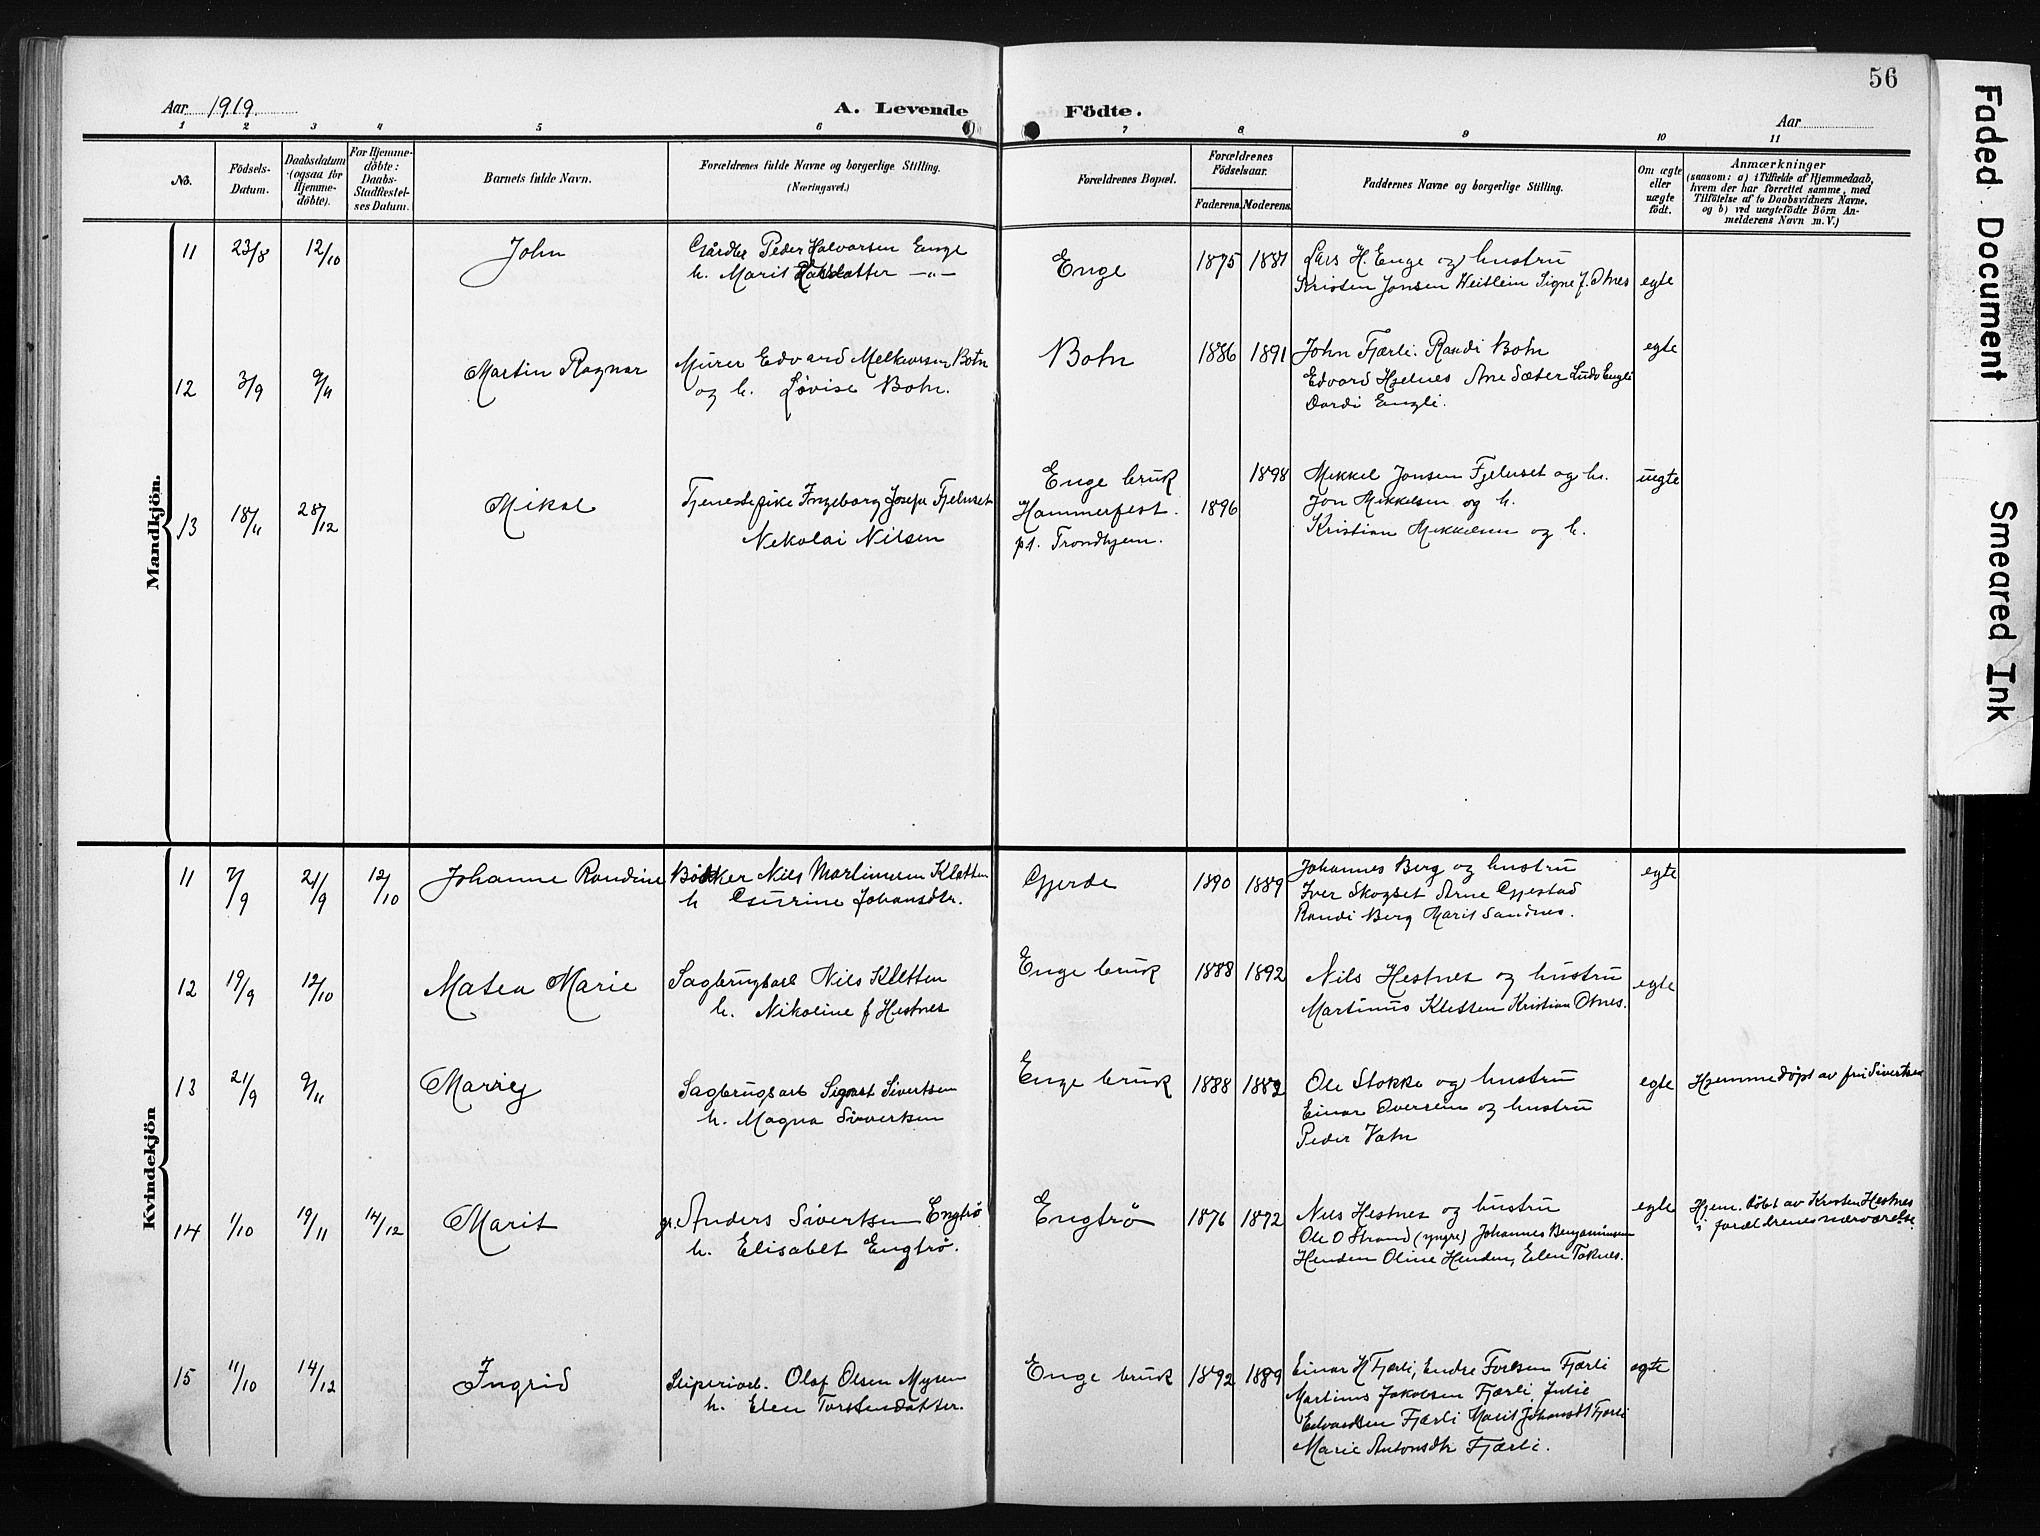 56
Aar 1919. A. Levende Födte. Aar
1 2 3 4 5 6 7 8 9 10 11
No. Födsels-Datum. Daabsdatum (ogsaa for Hjemme-döbte). For Hjemme-döbte: Daabs-Stadfæstel-ses Datum. Barnets fulde Navn. Forældrenes fulde Navne og borgerlige Stilling. (Næringsvei.) Forældrenes Bopæl. Forældrenes Födselsaar. Faderens. Moderens. Faddernes Navne og borgerlige Stilling. Om ægte eller uægte födt. Anmærkninger (saasom: a) i Tilfælde af Hjemmedaab, hvem der har forrettet samme, med Tilföielse af to Daabsvidners Navne, og b) ved uægtefödte Börn An-melderens Navn m. V.)
Mandkjön.
11 23/8 12/10 John Gårdbr Peder Halvorsen Enge Enge 1875 1881 Lars H. Enge og hustru egte
h. Marit -"- Kristen Jonsen Heitlein Signe f. Otnes
12 3/9 9/11 Martin Ragnar Murer Edvard Melkiorsen Botn Botn 1886 1891 John Fjærli. Randi Botn egte
og h. Lovise Botn. Edvard Hjelnes Ane Sæter Ludv Engli
Dordi Engli.
13 18/11 28/12 Mikal Tjenestepike Ingeborg Josefa Fjelnset Enge bruk 1898 Mikkel Jonsen Fjelnset og h. uegte
Nikolai Nilsen Hammerfest. 1896 Jon Mikkelsen og h.
pt. Trondhjem. Kristian Mikkelsen og h.
Kvindekjön
11 7/9 21/9 12/10 Johanne Randine Bøkker Nils Martinusen Kletten Gjerde 1890 1889 Johannes Berg og hustru egte
h Gurine Johansdtr. Iver Skogset Arne Gjestad
Randi Berg Marit Sandnes.
12 19/9 12/10 Matea Marie Sagbrugsarb Nils Kletten Enge bruk 1888 1892 Nils Hestnes og hustru egte
h. Nikoline f Hestnes Martinus Kletten Kristian Otnes.
13 21/9 9/11 Marrey Sagbrugsarb Signart Sivertsen Enge bruk 1888 1882 Ole Stokke og hustru egte Hjemmedøpt av fru Sivertsen
h. Magna Sivertsen Einar Oversen og hustru
Peder Vatn
14 1/10 19/11 14/12 Marit gr. Anders Sivertsen Engtrø Engtrø 1876 1872 Nils Hestnes og hustru egte Hjem. døbt av Kristen Hestnes
h. Elisabet Engtrø. Ole O Strand (yngre) Johannes Benjaminsen i forældrenes nærværelse.
Henden Oline Henden, Elen Taknes.
15 11/10 14/12 Ingrid Sliperiarb. Olaf Olsen Myren Enge bruk 1892 1889 Einar H Fjærli, Endre Forsem Fjærli egte
h. Elen Torstensdatter. Martinus Jakobsen Fjærli, Julie
Edvardsen Fjærli Marit Johansdt Fjærli
Marie Antonsdtr Fjærli.
Faded Document
Smeared Ink